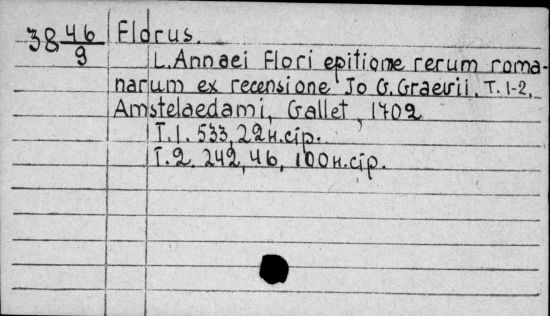 38 46/9 Florus.
L. Annaei Flori epitione rerum roma-
narum ex recensione Jo G. Graevii. T. 1-2.
Amstelaedami, Gallet, 1702
T. 1. 533, 22 н.стр.
T. 2. 242, 46, 100 н.стр.